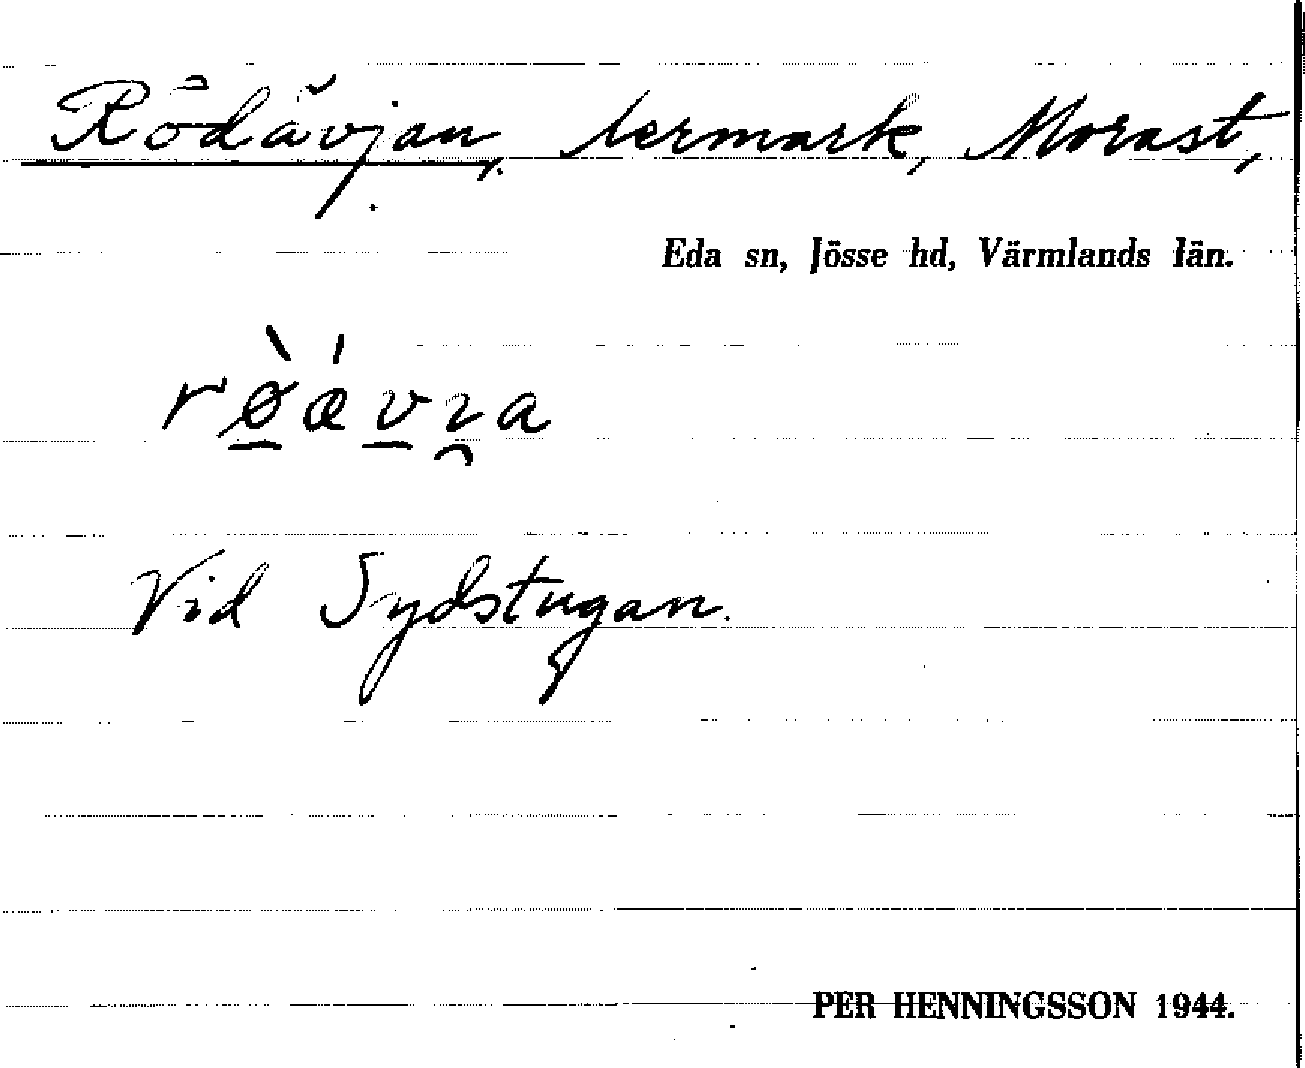 Rödävjan, lermark, Morast,
Eda sn, Jösse hd, Värmlands län.
rø̠̀ǽv̠ɿ̯a
Vid Sydstugan.
PER HENNINGSSON 1944.